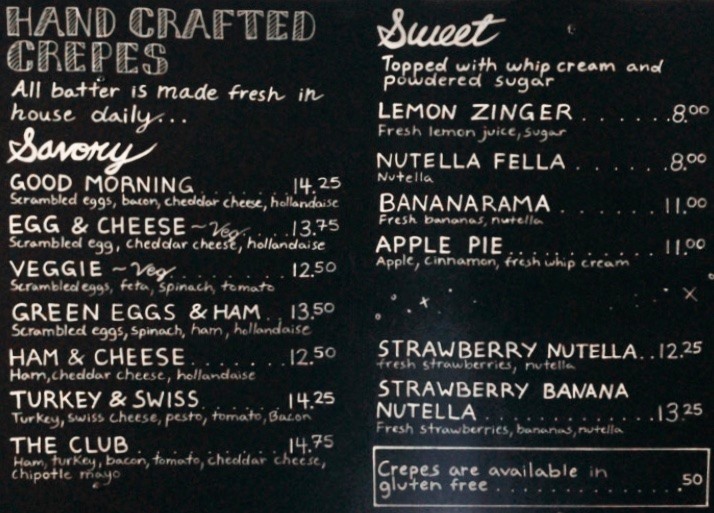 HAND CRAFTED
CREPES
All batter is made fresh in
house daily...
Savory
GOOD MORNING.......14.25
Scrambled eggs, bacon, cheddar cheese, hollandaise
EGG & CHEESE ~Veg.....13.75
Scrambled egg, cheddar cheese, hollandaise
VEGGIE ~Veg........12.50
Scrambled eggs, feta, spinach, tomato
GREEN EGGS & HAM..13.50
Scrambled eggs, spinach, ham, hollandaise
HAM & CHEESE.......12.50
Ham, cheddar cheese, hollandaise
TURKEY & SWISS......14.25
Turkey, swiss cheese, pesto, tomato, Bacon
THE CLUB..........14.75
Ham, turkey, bacon, tomato, cheddar cheese,
chipotle mayo
Sweet
Topped with whip cream and
powdered sugar
LEMON ZINGER.......8.00
Fresh lemon juice, sugar
NUTELLA FELLA.......8.00
Nutella
BANANARAMA.......11.00
Fresh bananas, nutella
APPLE PIE...........11.00
Apple, cinnamon, fresh whip cream
STRAWBERRY NUTELLA..12.25
fresh strawberries, nutella
STRAWBERRY BANANA
NUTELLA............13.25
Fresh strawberries, bananas, nutella
Crepes are available in
gluten free............50